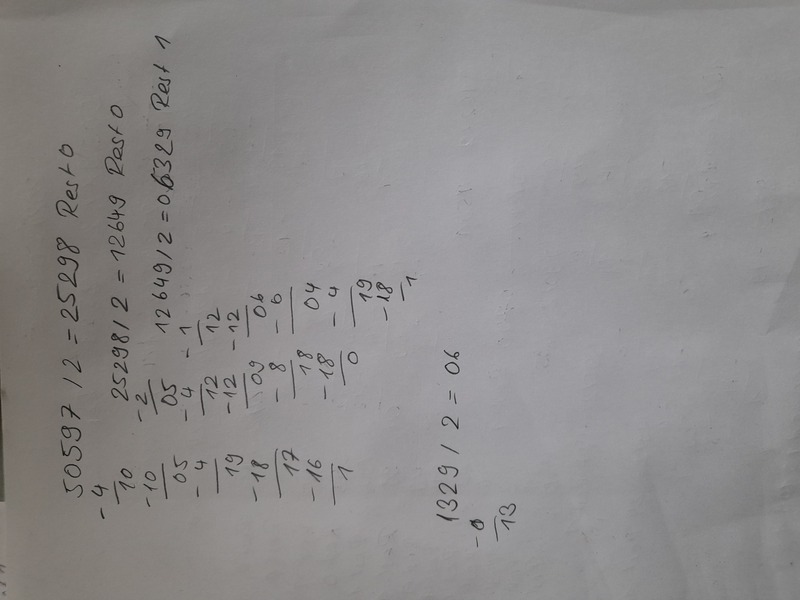 50597 / 2 = 25298 Rest 0
- 4
10 25298 / 2 = 12649 Rest 0
-10 - 2
05 05 12649 / 2 = 06329 Rest 1
- 4 - 4 - 1
19 12 12
-18 -12 -12
17 09 06
-16 - 8 - 6
1 18 04
-18 - 4
0 19
-18
1
1329 / 2 = 06
-0
13